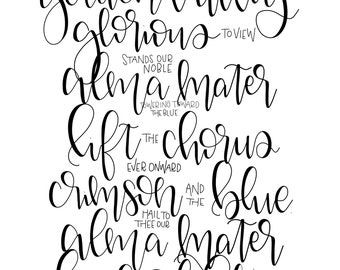 golden valley
glorious TO VIEW
STANDS OUR
NOBLE
alma mater
TOWERING TOWARD
THE BLUE
lift THE chorus
EVER ONWARD
crimson AND THE blue
HAIL TO
THEE OUR
alma mater